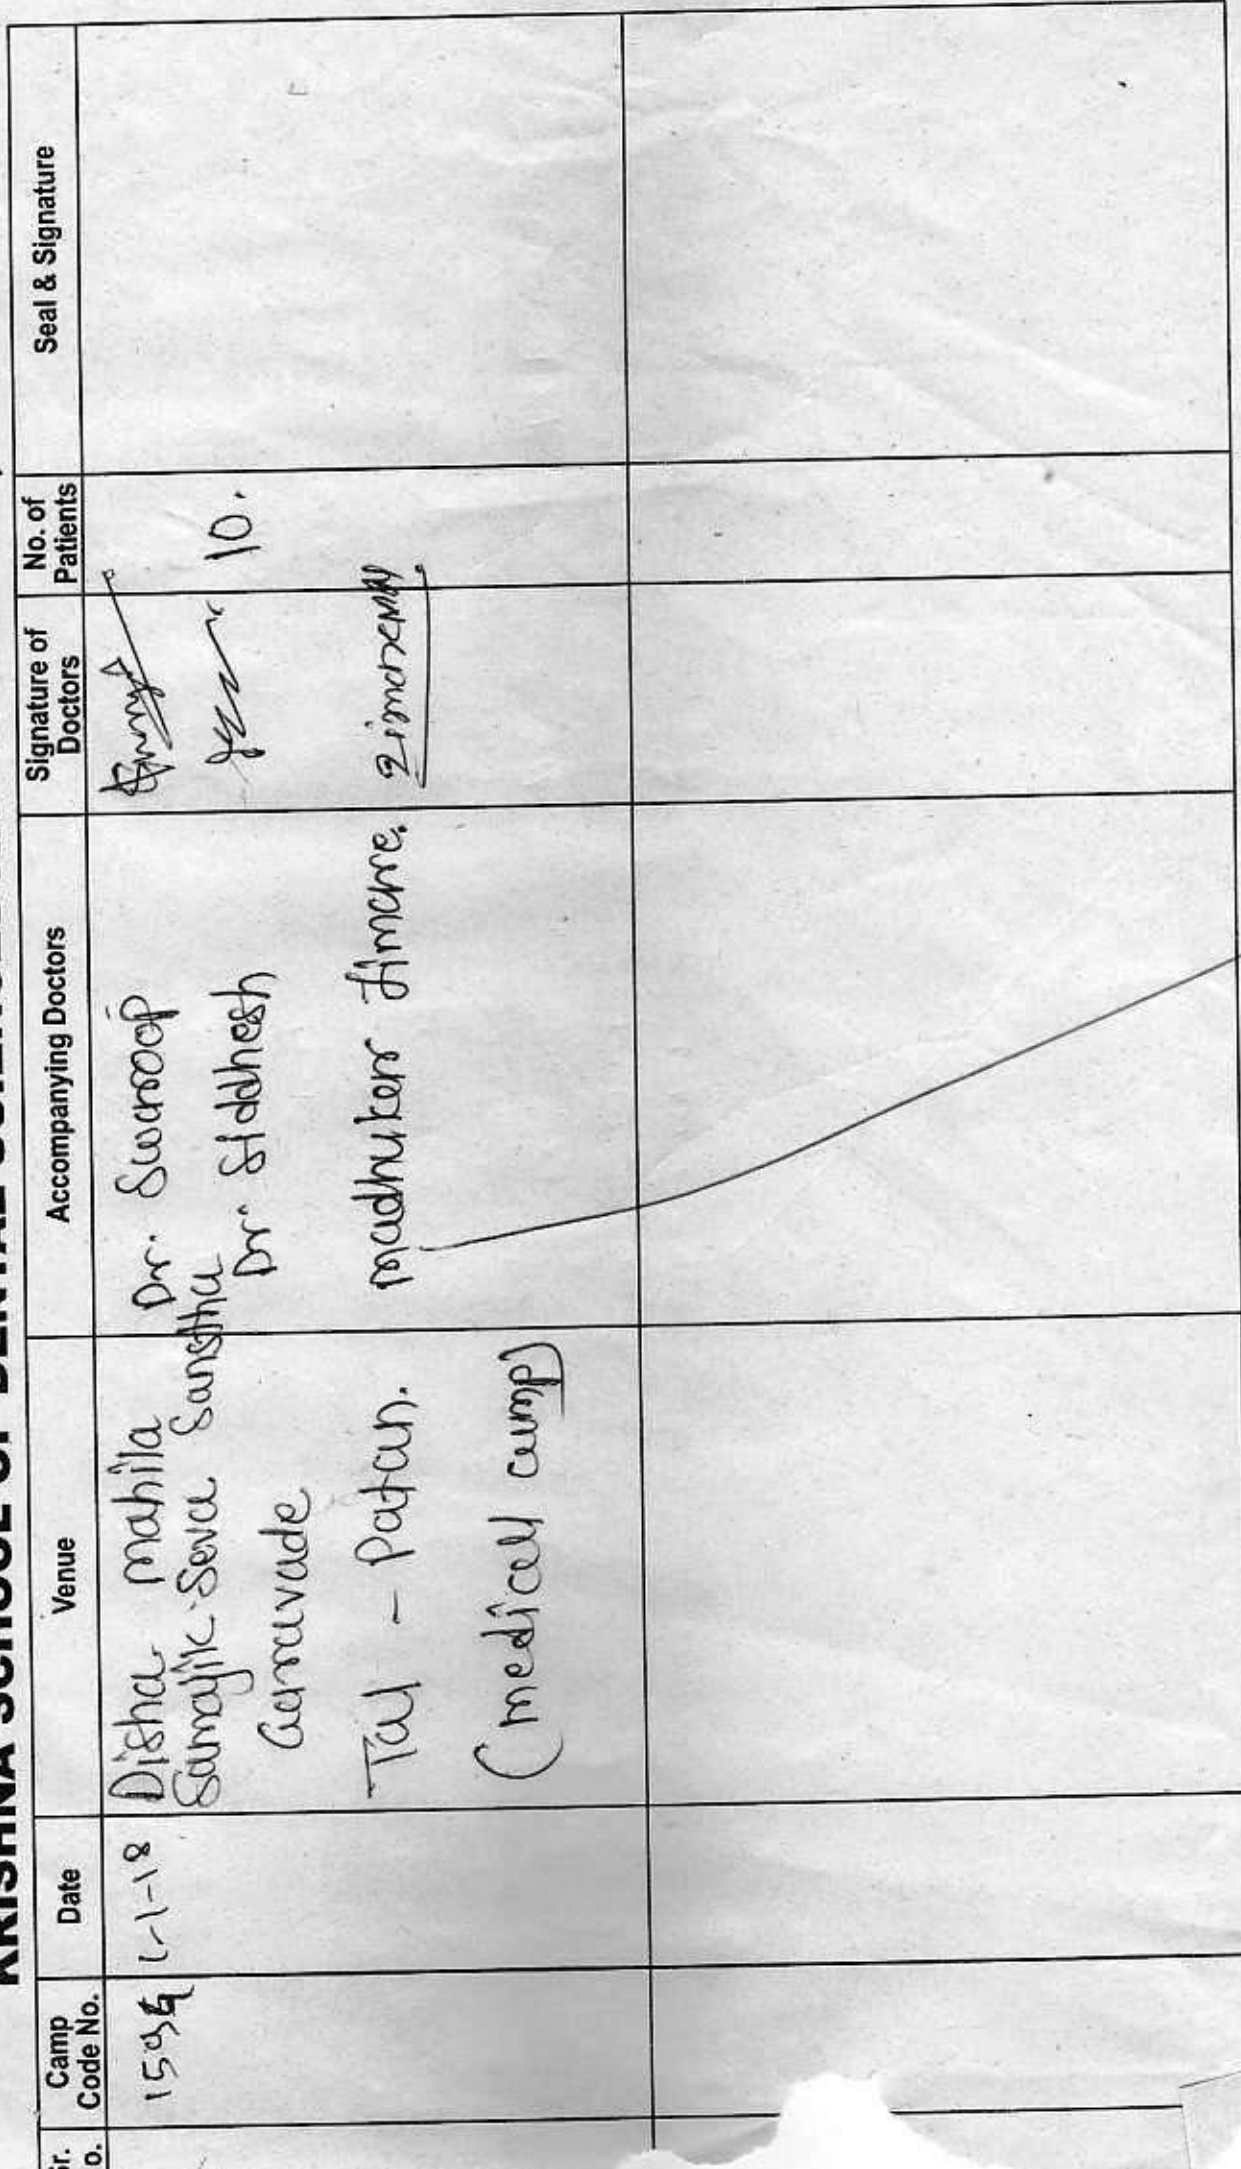 KRISHNA SCHOOL OF DENTAL
Camp Code No.
Date
Venue
Accompanying Doctors
Signature of Doctors
No. of Patients
Seal & Signature
1-1-18
Disha mahila
Samajik Seva Sanstha
Tal - Patan.
(medical camp)
Dr. Swaroop
Dr. Siddhesh
madhukar Jimare.
10.